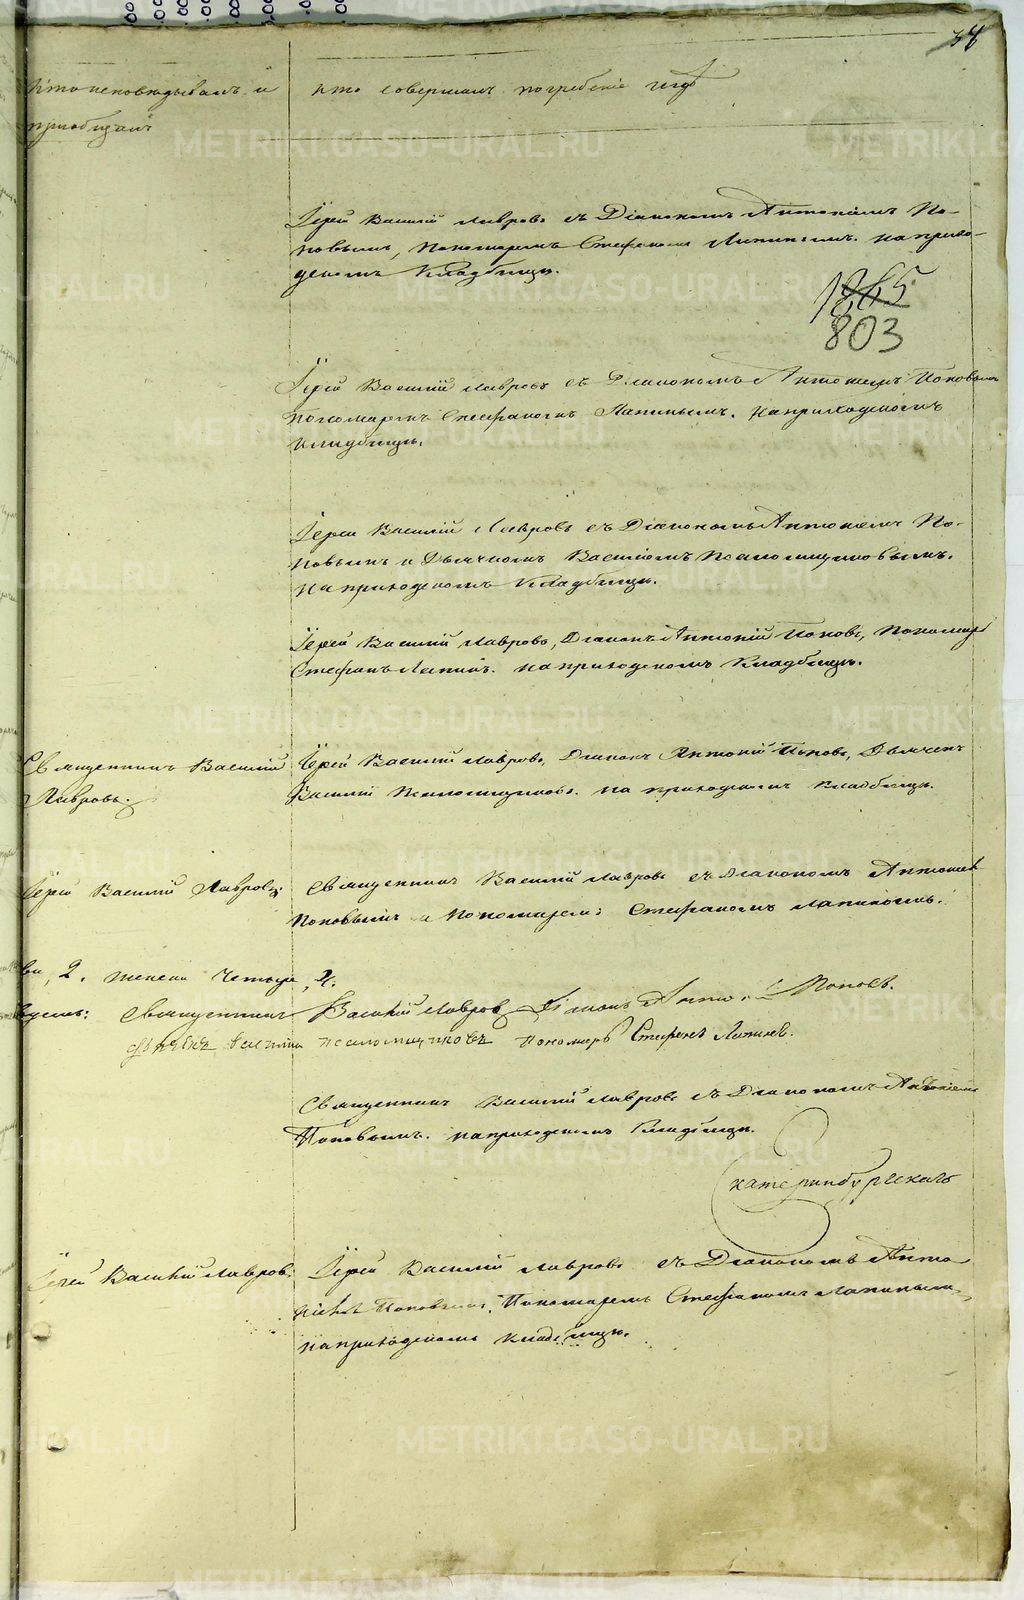 38
Кто исповѣдывалъ и
приобщалъ
Кто совершалъ погребенiе и гдѣ
Iерей Василiй Лавровъ съ Дiакономъ Антонiемъ По-
повымъ, Пономаремъ Стефаномъ Лапинымъ. на прихо-
дскомъ Кладбищѣ.
1865
803
Iерей Василiй Лавровъ съ Дiакономъ Антонiемъ Поповымъ
Пономаремъ Стефаномъ Лапинымъ. на приходскомъ
кладбищѣ.
Iерей Василiй Лавровъ съ Дiакономъ Антонiемъ По-
повымъ и Дьячкомъ Василiемъ Псаломщиковымъ.
на приходскомъ Кладбищѣ.
Iерей Василiй Лавровъ, Дiаконъ Антонiй Поповъ, Пономарь
Стефанъ Лапинъ. на приходскомъ Кладбищѣ.
Священникъ Василiй
Лавровъ.
Iерей Василiй Лавровъ, Дiаконъ Антонiй Поповъ, Дьячекъ
Василiй Псаломщиковъ. на приходскомъ Кладбищѣ.
Iерей Василiй Лавровъ.
Священникъ Василiй Лавровъ съ Дiакономъ Антонiемъ
Поповымъ и Пономаремъ Стефаномъ Лапинымъ.
2. женска четыре, 4.
Священникъ Василiй Лавровъ Дiаконъ Антонiй Поповъ.
Дьячекъ Василiй Псаломщиковъ Пономарь Стефанъ Лапинъ.
Священникъ Василiй Лавровъ съ Дiакономъ Антонiемъ
Поповымъ. на приходскомъ Кладбищѣ.
Екатеринбургскаго
Iерей Василiй Лавровъ.
Iерей Василiй Лавровъ съ Дiакономъ Анто-
нiемъ Поповымъ, Пономаремъ Стефаномъ Лапинымъ,
на приходскомъ кладбищѣ.
METRIKI.GASO-URAL.RU